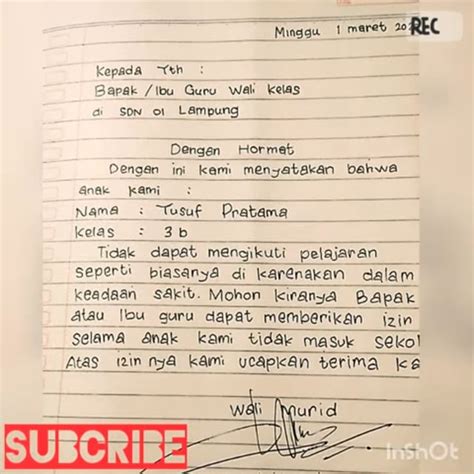 Minggu 1 maret 20
REC
Kepada Yth :
Bapak / Ibu Guru Wali Kelas
di SDN 01 Lampung
Dengan Hormat
Dengan ini kami menyatakan bahwa
anak kami :
Nama : Yusuf Pratama
Kelas : 3 b
Tidak dapat mengikuti pelajaran
seperti biasanya di karenakan dalam
keadaan sakit. Mohon kiranya Bapak
atau Ibu guru dapat memberikan izin
selama anak kami tidak masuk seko
Atas izin nya kami ucapkan terima ka
Wali Murid
SUBCRIBE
InShOt